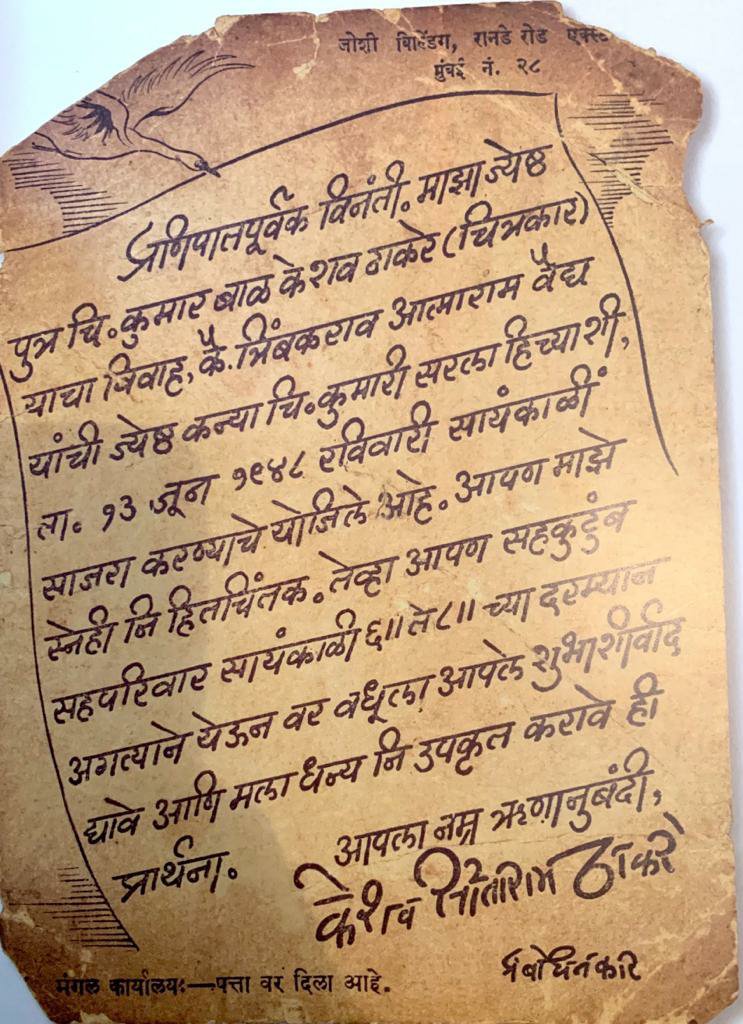 जोशी बिल्डिंग, रानडे रोड एक्स
मुंबई नं. २८
प्रणिपातपूर्वक विनंती. माझा ज्येष्ठ
पुत्र चि. कुमार बाळ केशव ठाकरे (चित्रकार)
याचा विवाह, कै. त्रिंबकराव आत्माराम वैद्य
यांची ज्येष्ठ कन्या चि. कुमारी सरला हिच्याशी,
ता. १३ जून १९४८ रविवारी सायंकाळीं
साजरा करण्याचे योजिले आहे. आपण माझे
स्नेही नि हितचिंतक. तेव्हा आपण सहकुटुंब
सहपरिवार सायंकाळी ६॥ ते ८॥ च्या दरम्यान
अगत्याने येऊन वर वधूला आपले शुभाशीर्वाद
द्यावे आणि मला धन्य नि उपकृत करावे ही
प्रार्थना.
आपला नम्र ऋणानुबंदी,
केशव सीताराम ठाकरे
प्रबोधनकार
मंगल कार्यालय:—पत्ता वर दिला आहे.